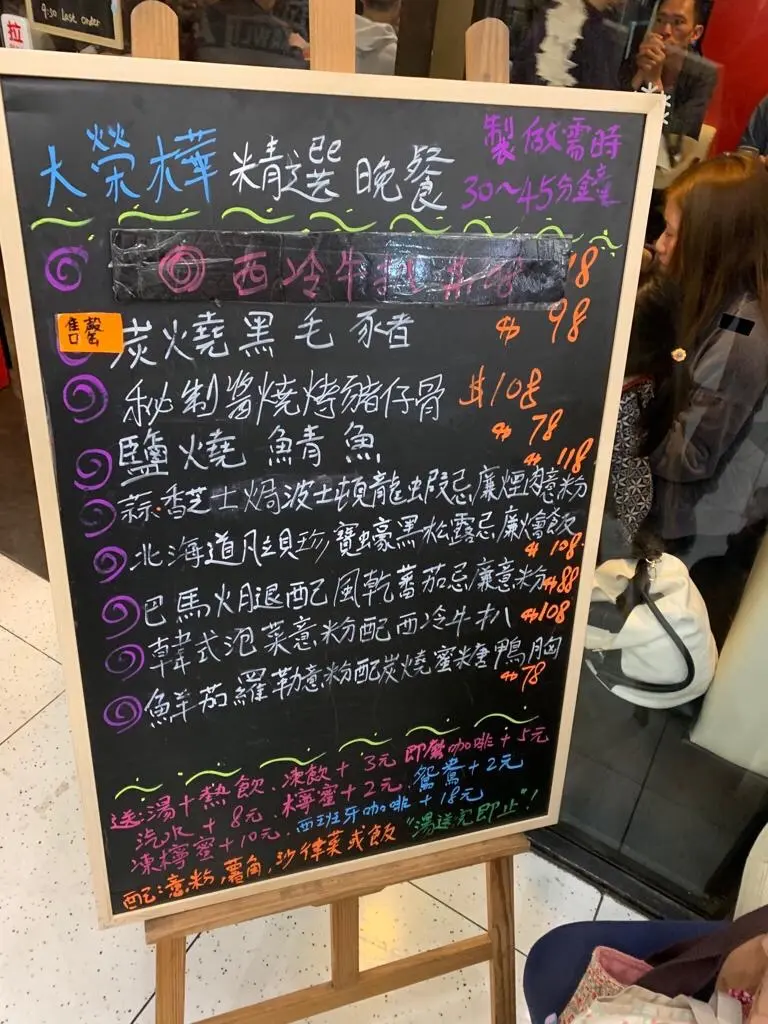 9:30 last order
拉
大榮樺 精選晚餐
製做需時
30~45分鐘
西冷牛扒
售罄
炭燒黑毛豬 $98
秘制醬燒烤豬仔骨 $108
鹽燒鯖魚 $78
$118
蒜香芝士焗波士頓龍蝦忌廉煙肉意粉
北海道帆立貝珍寶蠔黑松露忌廉燴飯
$108
巴馬火腿配風乾蕃茄忌廉意粉 $88
韓式泡菜意粉配西冷牛扒 $108
鮮茄羅勒意粉配炭燒蜜糖鴨胸
$78
送:湯+熱飲、凍飲+3元 即磨咖啡+5元
汽水+8元、檸蜜+2元、鴛鴦+2元
凍檸蜜+10元、西班牙咖啡+18元
配:意粉,薯角,沙律菜或飯 "湯送完即止"!